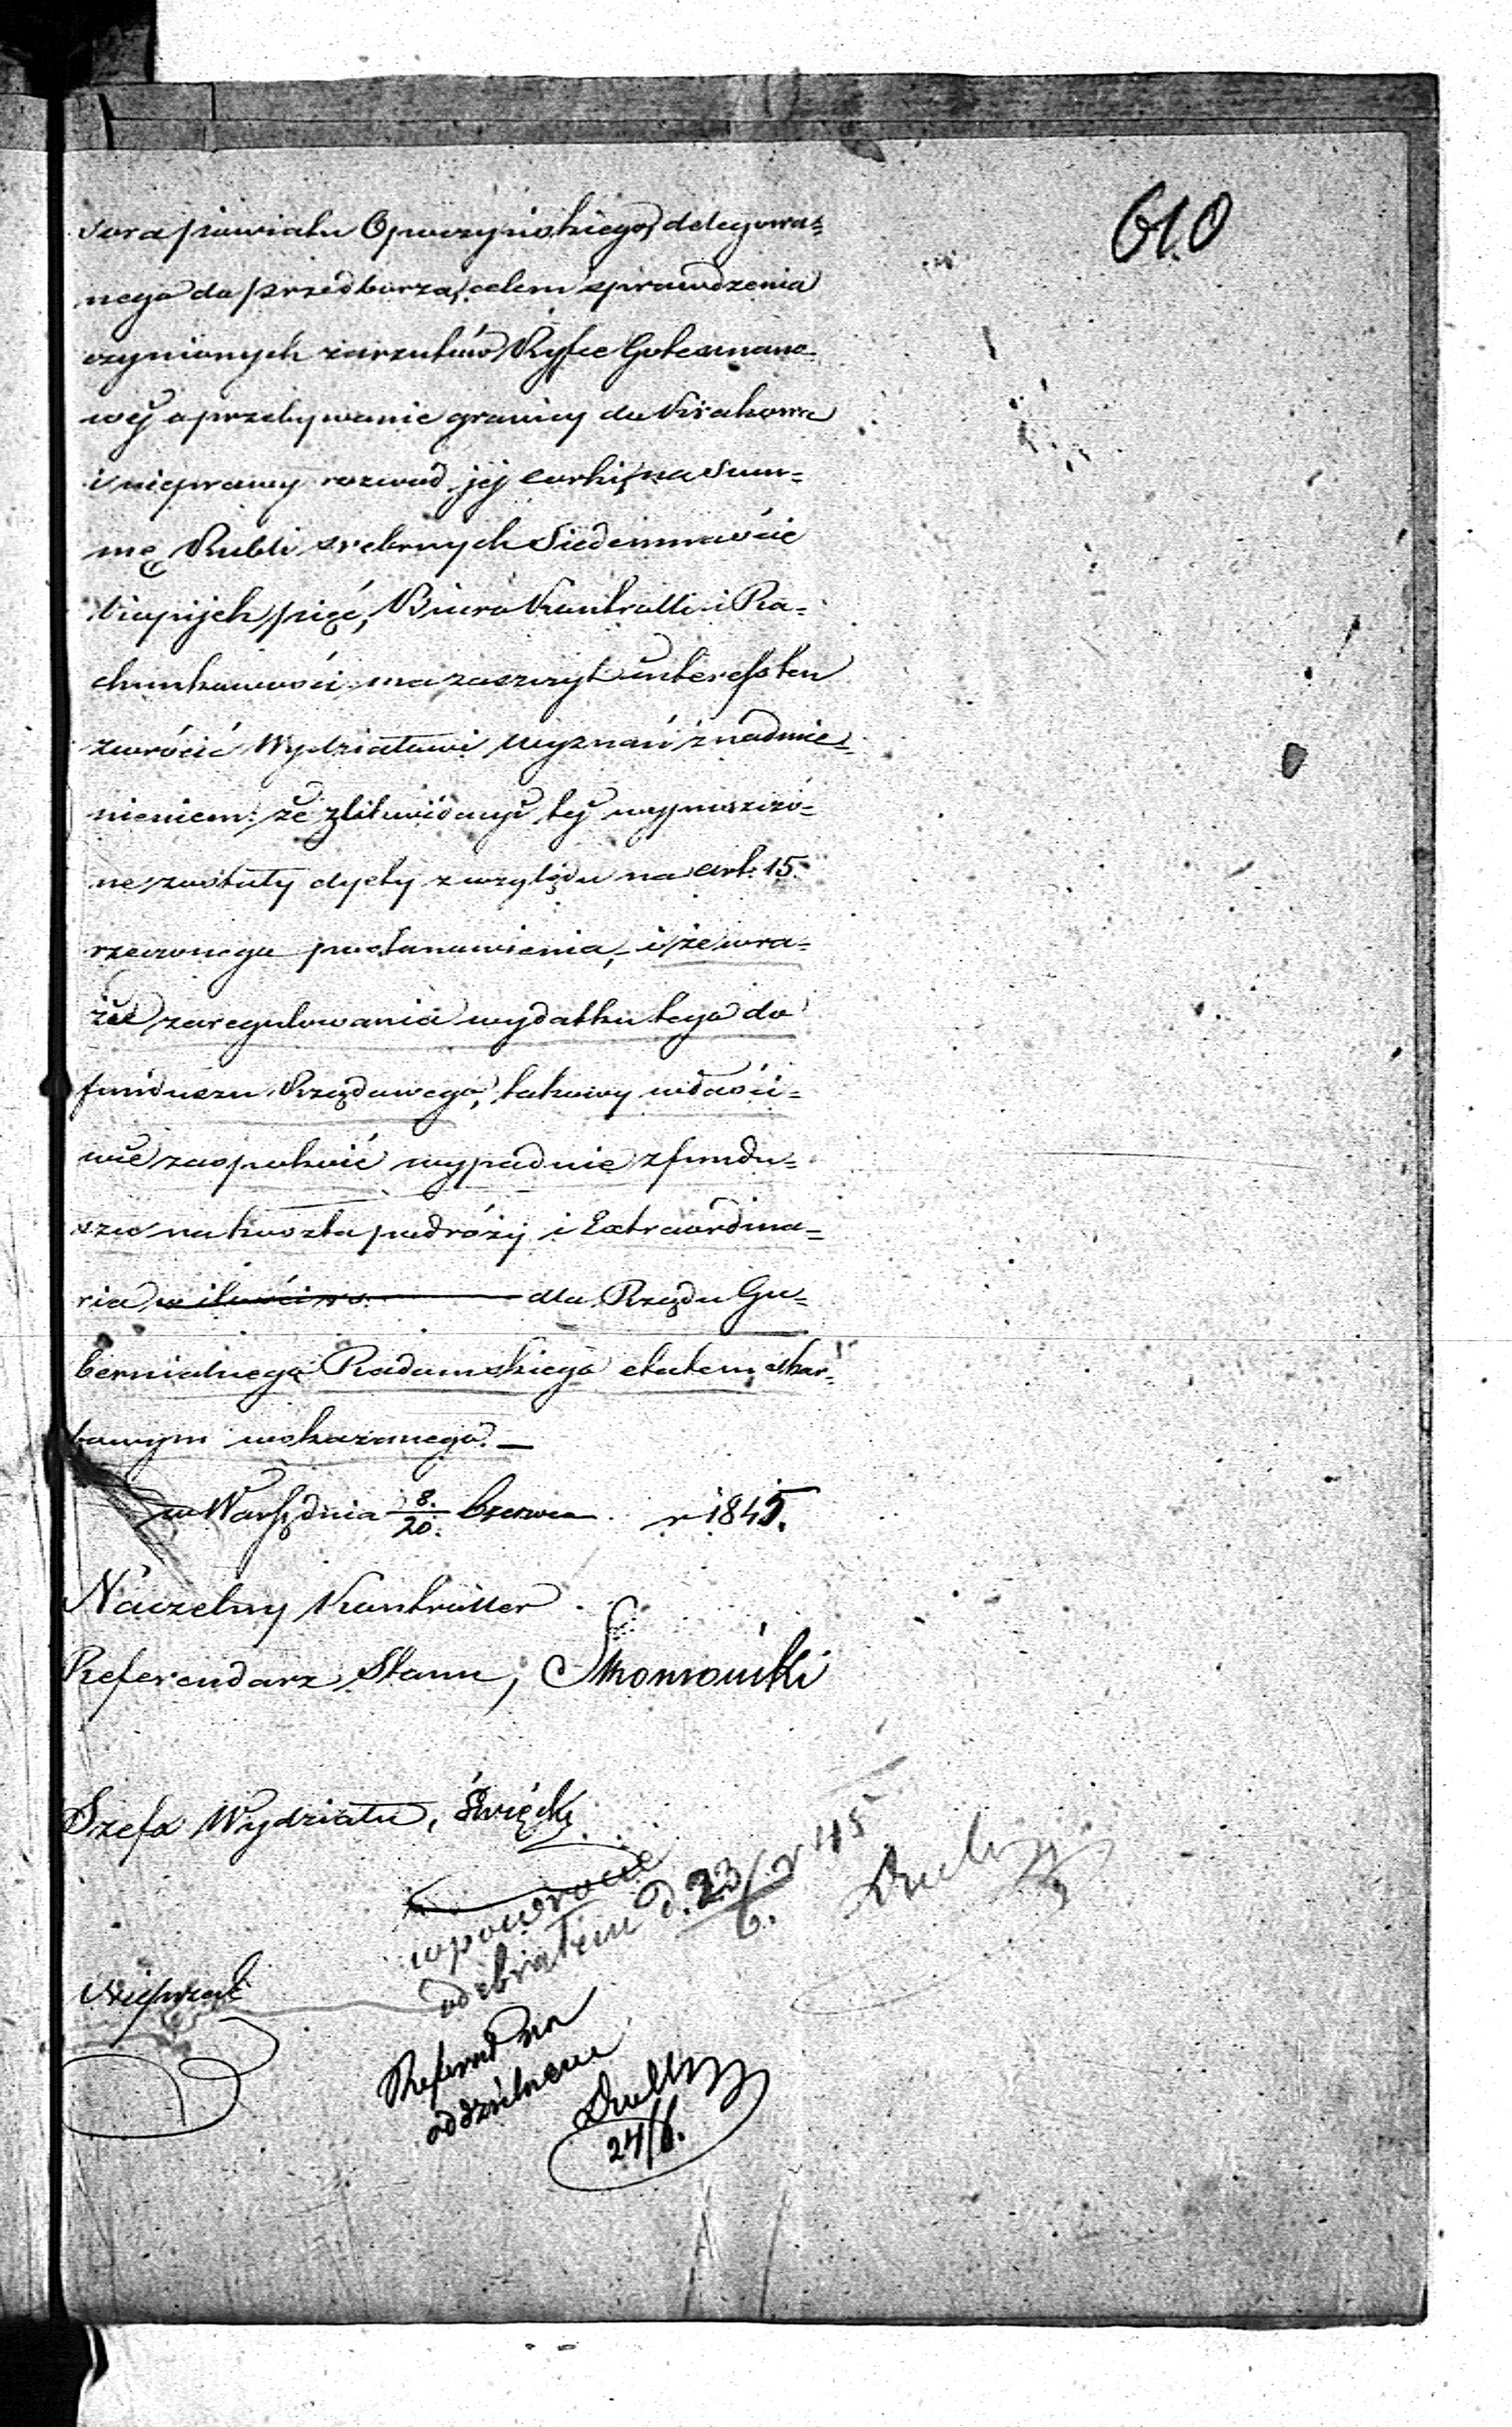 610
sora powiatu Opoczyńskiego, delegowa=
nego do Przedborza, celem sprawdzenia
czynionych zarzutów Ryfce Gotesmano=
wéj o przebywanie granicy do Krakowa
i nieprawy rozwód jéj córki, na Sum=
mę Rubli srebrnych Siedemnaście
kopijek pięć, Biuro Kontrolli i Ra=
chunkowości ma zaszczyt interess ten
zwrócić Wydziałowi Wyznań z nadmie=
nieniem: że z likwidacyi téj wypuszczo=
ne zostały dyety z względu na art. 15.
rzeczonego postanowienia, i że w ra=
zie zaregulowania wydatku tego do
funduszu Rządowego, takowy właści=
wie zaspokoić wypadnie z fundu=
szu na koszta podróży i Extraordina=
ria w ilości rs. dla Rządu Gu=
bernialnego Radomskiego etatem skar=
bowym wskazanego. —
w Warsz. dnia 8./20. Czerwca r 1845.
Naczelny Kontroller
Referendarz Stanu,
Szef Wydziału, Święcki
w powrocie
odebrałem d. 23/6. r 45
Referat na
oddzielnem
24/6.